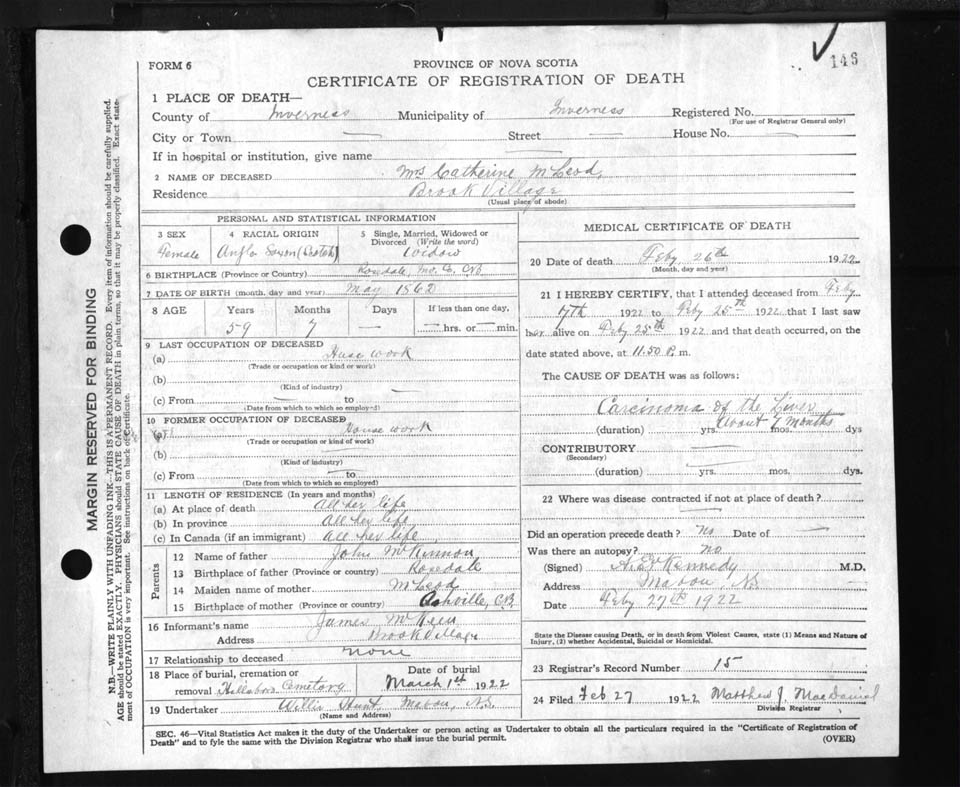 146
FORM 6
PROVINCE OF NOVA SCOTIA
CERTIFICATE OF REGISTRATION OF DEATH
1 PLACE OF DEATH—
County of Inverness Municipality of Inverness Registered No.
(For use of Registrar General only)
City or Town — Street — House No. —
If in hospital or institution, give name —
2 NAME OF DECEASED Mrs Catherine McLeod,
Residence Brook Village
(Usual place of abode)
PERSONAL AND STATISTICAL INFORMATION
3 SEX 4 RACIAL ORIGIN 5 Single, Married, Widowed or Divorced (Write the word)
Female Anglo Saxon (Scotch) Widow
6 BIRTHPLACE (Province or Country) Rosedale, Inv. Co. CB
7 DATE OF BIRTH (month, day and year) May 1862
8 AGE Years Months Days If less than one day,
59 7 — — hrs. or — min.
9 LAST OCCUPATION OF DECEASED
(a) House work
(Trade or occupation or kind or work)
(b)
(Kind of industry)
(c) From — to —
(Date from which to which so employed)
10 FORMER OCCUPATION OF DECEASED
(a) House work
(Trade or occupation or kind of work)
(b) —
(Kind of industry)
(c) From — to
(Date from which to which so employed)
11 LENGTH OF RESIDENCE (In years and months)
(a) At place of death All her life
(b) In province All her life
(c) In Canada (if an immigrant) All her life
Parents
12 Name of father John McKinnon
13 Birthplace of father (Province or country) Rosedale
14 Maiden name of mother McLeod
15 Birthplace of mother (Province or country) Ashville, C.B.
16 Informant's name James McKeen
Address Brook Village
17 Relationship to deceased none
18 Place of burial, cremation or removal Hillsboro Cemetary
Date of burial
March 1st 1922
19 Undertaker Willis Hunt, Mabou, N.S.
(Name and Address)
MEDICAL CERTIFICATE OF DEATH
20 Date of death Feby 26th 1922
(Month, day and year)
21 I HEREBY CERTIFY, that I attended deceased from Feby
7th 1922 to Feby 25th 1922 that I last saw
her alive on Feby 25th 1922 and that death occurred, on the
date stated above, at 11.50 P. m.
The CAUSE OF DEATH was as follows:
Carcinoma of the Liver
(duration) yrs. About 7 months mos. dys
CONTRIBUTORY —
(Secondary)
(duration) — yrs. — mos. dys.
22 Where was disease contracted if not at place of death? —
Did an operation precede death? No Date of —
Was there an autopsy? No
(Signed) Kennedy M.D.
Address Mabou, N.S.
Date Feby 27th 1922
State the Disease causing Death, or in death from Violent Causes, state (1) Means and Nature of
Injury, (2) whether Accidental, Suicidal or Homicidal.
23 Registrar's Record Number 15
24 Filed Feb 27 1922 Matthew J. MacDaniel
Division Registrar
SEC. 46—Vital Statistics Act makes it the duty of the Undertaker or person acting as Undertaker to obtain all the particulars required in the "Certificate of Registration of
Death" and to fyle the same with the Division Registrar who shall issue the burial permit.
(OVER)
MARGIN RESERVED FOR BINDING
N.B.—WRITE PLAINLY WITH UNFADING INK—THIS IS A PERMANENT RECORD. Every item of information should be carefully supplied.
AGE should be stated EXACTLY. PHYSICIANS should STATE CAUSE OF DEATH in plain terms, so that it may be properly classified. Exact state-
ment of OCCUPATION is very important. See instructions on back of Certificate.